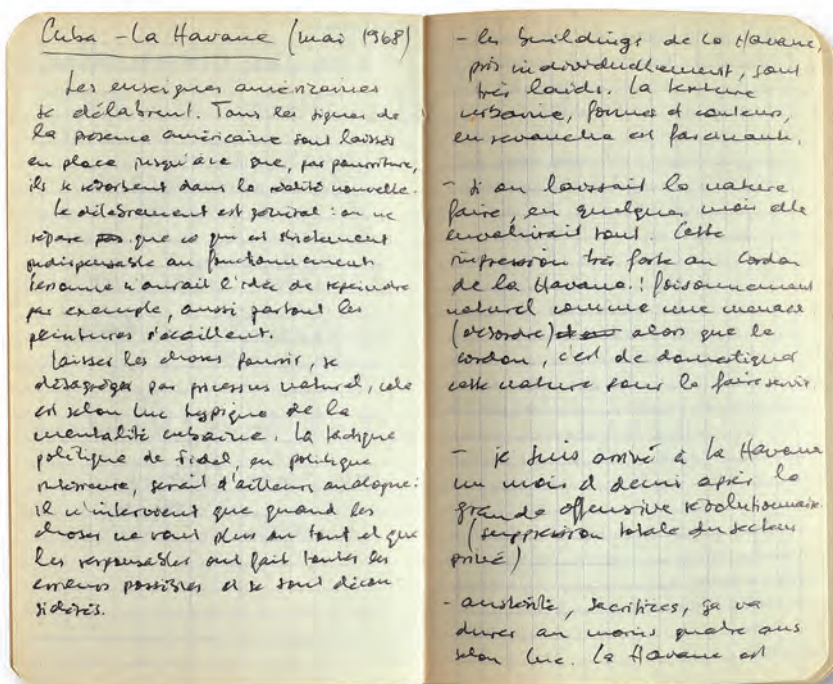 Cuba - La Havane (mai 1968)
Les enseignes américaines
se délabrent. Tous les signes de
la présence américaine sont laissés
en place jusqu'à ce que, par pourriture,
ils se résorbent dans la réalité nouvelle.
Le délabrement est général : on ne
répare que ce qui est strictement
indispensable au fonctionnement.
Personne n'aurait l'idée de repeindre
par exemple, aussi partout les
peintures s'écaillent.
Laisser les choses pourrir, se
désagréger par processus naturel, cela
est selon Luc typique de la
mentalité cubaine. La tactique
politique de Fidel, en politique
intérieure, serait d'ailleurs analogue :
il n'intervient que quand les
choses ne vont plus du tout et que
les responsables ont fait toutes les
erreurs possibles et se sont décon
sidérés.
- les buildings de la Havane,
pris individuellement, sont
très laids. La texture
urbaine, formes et couleurs,
en revanche est fascinante.
- Si on laissait la nature
faire, en quelques mois elle
envahirait tout. Cette
impression très forte au Cordon
de la Havane : foisonnement
naturel comme une menace
(désordre) alors que le
cordon, c'est de domestiquer
cette nature pour la faire servir.
- je suis arrivé à la Havane
un mois et demi après la
grande offensive révolutionnaire
(suppression totale du secteur
privé)
- austérité, sacrifices, ça va
durer au moins quatre ans
selon Luc. La Havane est